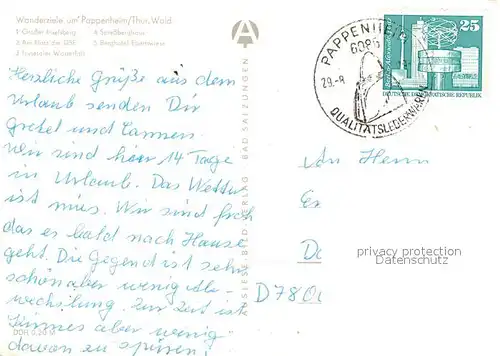 Wanderziele um Pappenheim/Thür. Wald
1 Großer Inselsberg 4 Spießberghaus
2 Am Haus der DSF 5 Berghotel Ebertswiese
3 Trusetaler Wasserfall
Herzliche Grüße aus dem
Urlaub senden Dir
Gretel und
Wir sind hier 14 Tage
in Urlaub. Das Wetter
ist mies. Wir sind froh
das es bald nach Hause
geht. Die Gegend ist sehr
schön aber wenig Ab-
wechslung. Zur Zeit ist
aber wenig
davon zu spüren!
DDR 0,20 M
VERLAG BAD SALZUNGEN
PAPPENHEIM
6086
29.-8.
QUALITÄTSLEDERWAREN
25
DEUTSCHE DEMOKRATISCHE REPUBLIK
An Herrn
privacy protection
Datenschutz
D 78